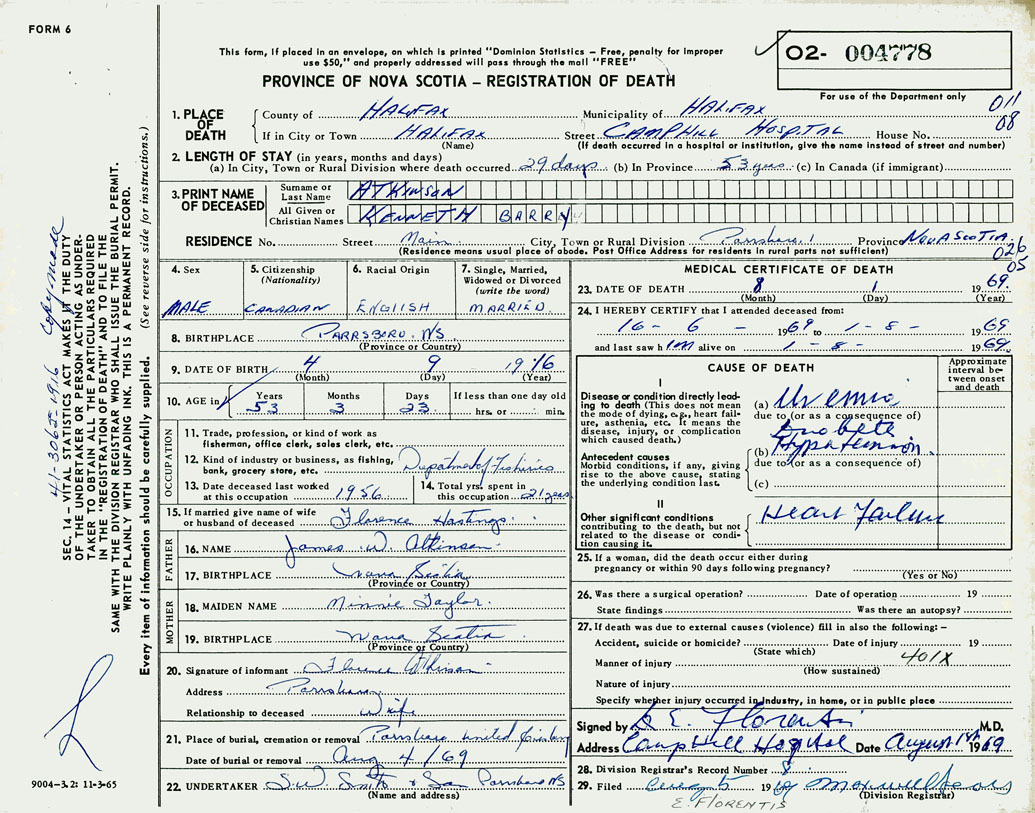 FORM 6
This form, if placed in an envelope, on which is printed "Dominion Statistics – Free, penalty for improper
use $50," and properly addressed will pass through the mail "FREE"
PROVINCE OF NOVA SCOTIA – REGISTRATION OF DEATH
02- 004778
For use of the Department only
011
08
1. PLACE OF DEATH
County of HALIFAX Municipality of HALIFAX
If in City or Town HALIFAX Street CAMPHILL HOSPITAL House No.
(Name) (If death occurred in a hospital or institution, give the name instead of street and number)
2. LENGTH OF STAY (in years, months and days)
(a) In City, Town or Rural Division where death occurred 29 days (b) In Province 53 yrs (c) In Canada (if immigrant)
3. PRINT NAME OF DECEASED
Surname or Last Name ATKINSON
All Given or Christian Names KENNETH BARRY
RESIDENCE No. Street Main City, Town or Rural Division Parrsboro Province NOVA SCOTIA
(Residence means usual place of abode. Post Office Address for residents in rural parts not sufficient)
026
05
4. Sex MALE
5. Citizenship (Nationality) CANADIAN
6. Racial Origin ENGLISH
7. Single, Married, Widowed or Divorced (write the word) MARRIED
8. BIRTHPLACE PARRSBORO. NS
(Province or Country)
9. DATE OF BIRTH 4 9 1916
(Month) (Day) (Year)
10. AGE in Years 53 Months 3 Days 23 If less than one day old hrs. or min.
OCCUPATION
11. Trade, profession, or kind of work as fisherman, office clerk, sales clerk, etc.
12. Kind of industry or business, as fishing, bank, grocery store, etc. Department of Fisheries
13. Date deceased last worked at this occupation 1956
14. Total yrs. spent in this occupation 21 years
15. If married give name of wife or husband of deceased Florence Hastings
FATHER
16. NAME James W. Atkinson
17. BIRTHPLACE Nova Scotia
(Province or Country)
MOTHER
18. MAIDEN NAME Minnie Taylor
19. BIRTHPLACE Nova Scotia
(Province or Country)
20. Signature of informant Florence Atkinson
Address Parrsboro
Relationship to deceased Wife
21. Place of burial, cremation or removal Parrsboro United
Date of burial or removal Aug 4/69
22. UNDERTAKER S.W. Smith & Son Parrsboro NS
(Name and address)
MEDICAL CERTIFICATE OF DEATH
23. DATE OF DEATH 8 1 1969
(Month) (Day) (Year)
24. I HEREBY CERTIFY that I attended deceased from:
16 - 6 - 1969 to 1 - 8 - 1969
and last saw him alive on 1 - 8 - 1969
CAUSE OF DEATH
Approximate interval between onset and death
I
Disease or condition directly leading to death (This does not mean the mode of dying, e.g., heart failure, asthenia, etc. It means the disease, injury, or complication which caused death.)
(a) Uremia
due to (or as a consequence of)
Antecedent causes
Morbid conditions, if any, giving rise to the above cause, stating the underlying condition last.
(b) Hypertension
due to (or as a consequence of)
(c)
II
Other significant conditions contributing to the death, but not related to the disease or condition causing it.
Heart Failure
25. If a woman, did the death occur either during pregnancy or within 90 days following pregnancy?
(Yes or No)
26. Was there a surgical operation? Date of operation 19
State findings Was there an autopsy?
27. If death was due to external causes (violence) fill in also the following: –
Accident, suicide or homicide? Date of injury 19
(State which)
Manner of injury 401X
(How sustained)
Nature of injury
Specify whether injury occurred in industry, in home, or in public place
Signed by E. Florentis M.D.
Address Camp Hill Hospital Date August 1969
28. Division Registrar's Record Number
29. Filed 19
(Division Registrar)
E. FLORENTIS
41-3065-1916 Copy made
SEC. 14 – VITAL STATISTICS ACT MAKES IT THE DUTY
OF THE UNDERTAKER OR PERSON ACTING AS UNDER-
TAKER TO OBTAIN ALL THE PARTICULARS REQUIRED
IN THE "REGISTRATION OF DEATH" AND TO FILE THE
SAME WITH THE DIVISION REGISTRAR WHO SHALL ISSUE THE BURIAL PERMIT.
WRITE PLAINLY WITH UNFADING INK. THIS IS A PERMANENT RECORD.
Every item of information should be carefully supplied. (See reverse side for instructions.)
9004-3.2: 11-3-65